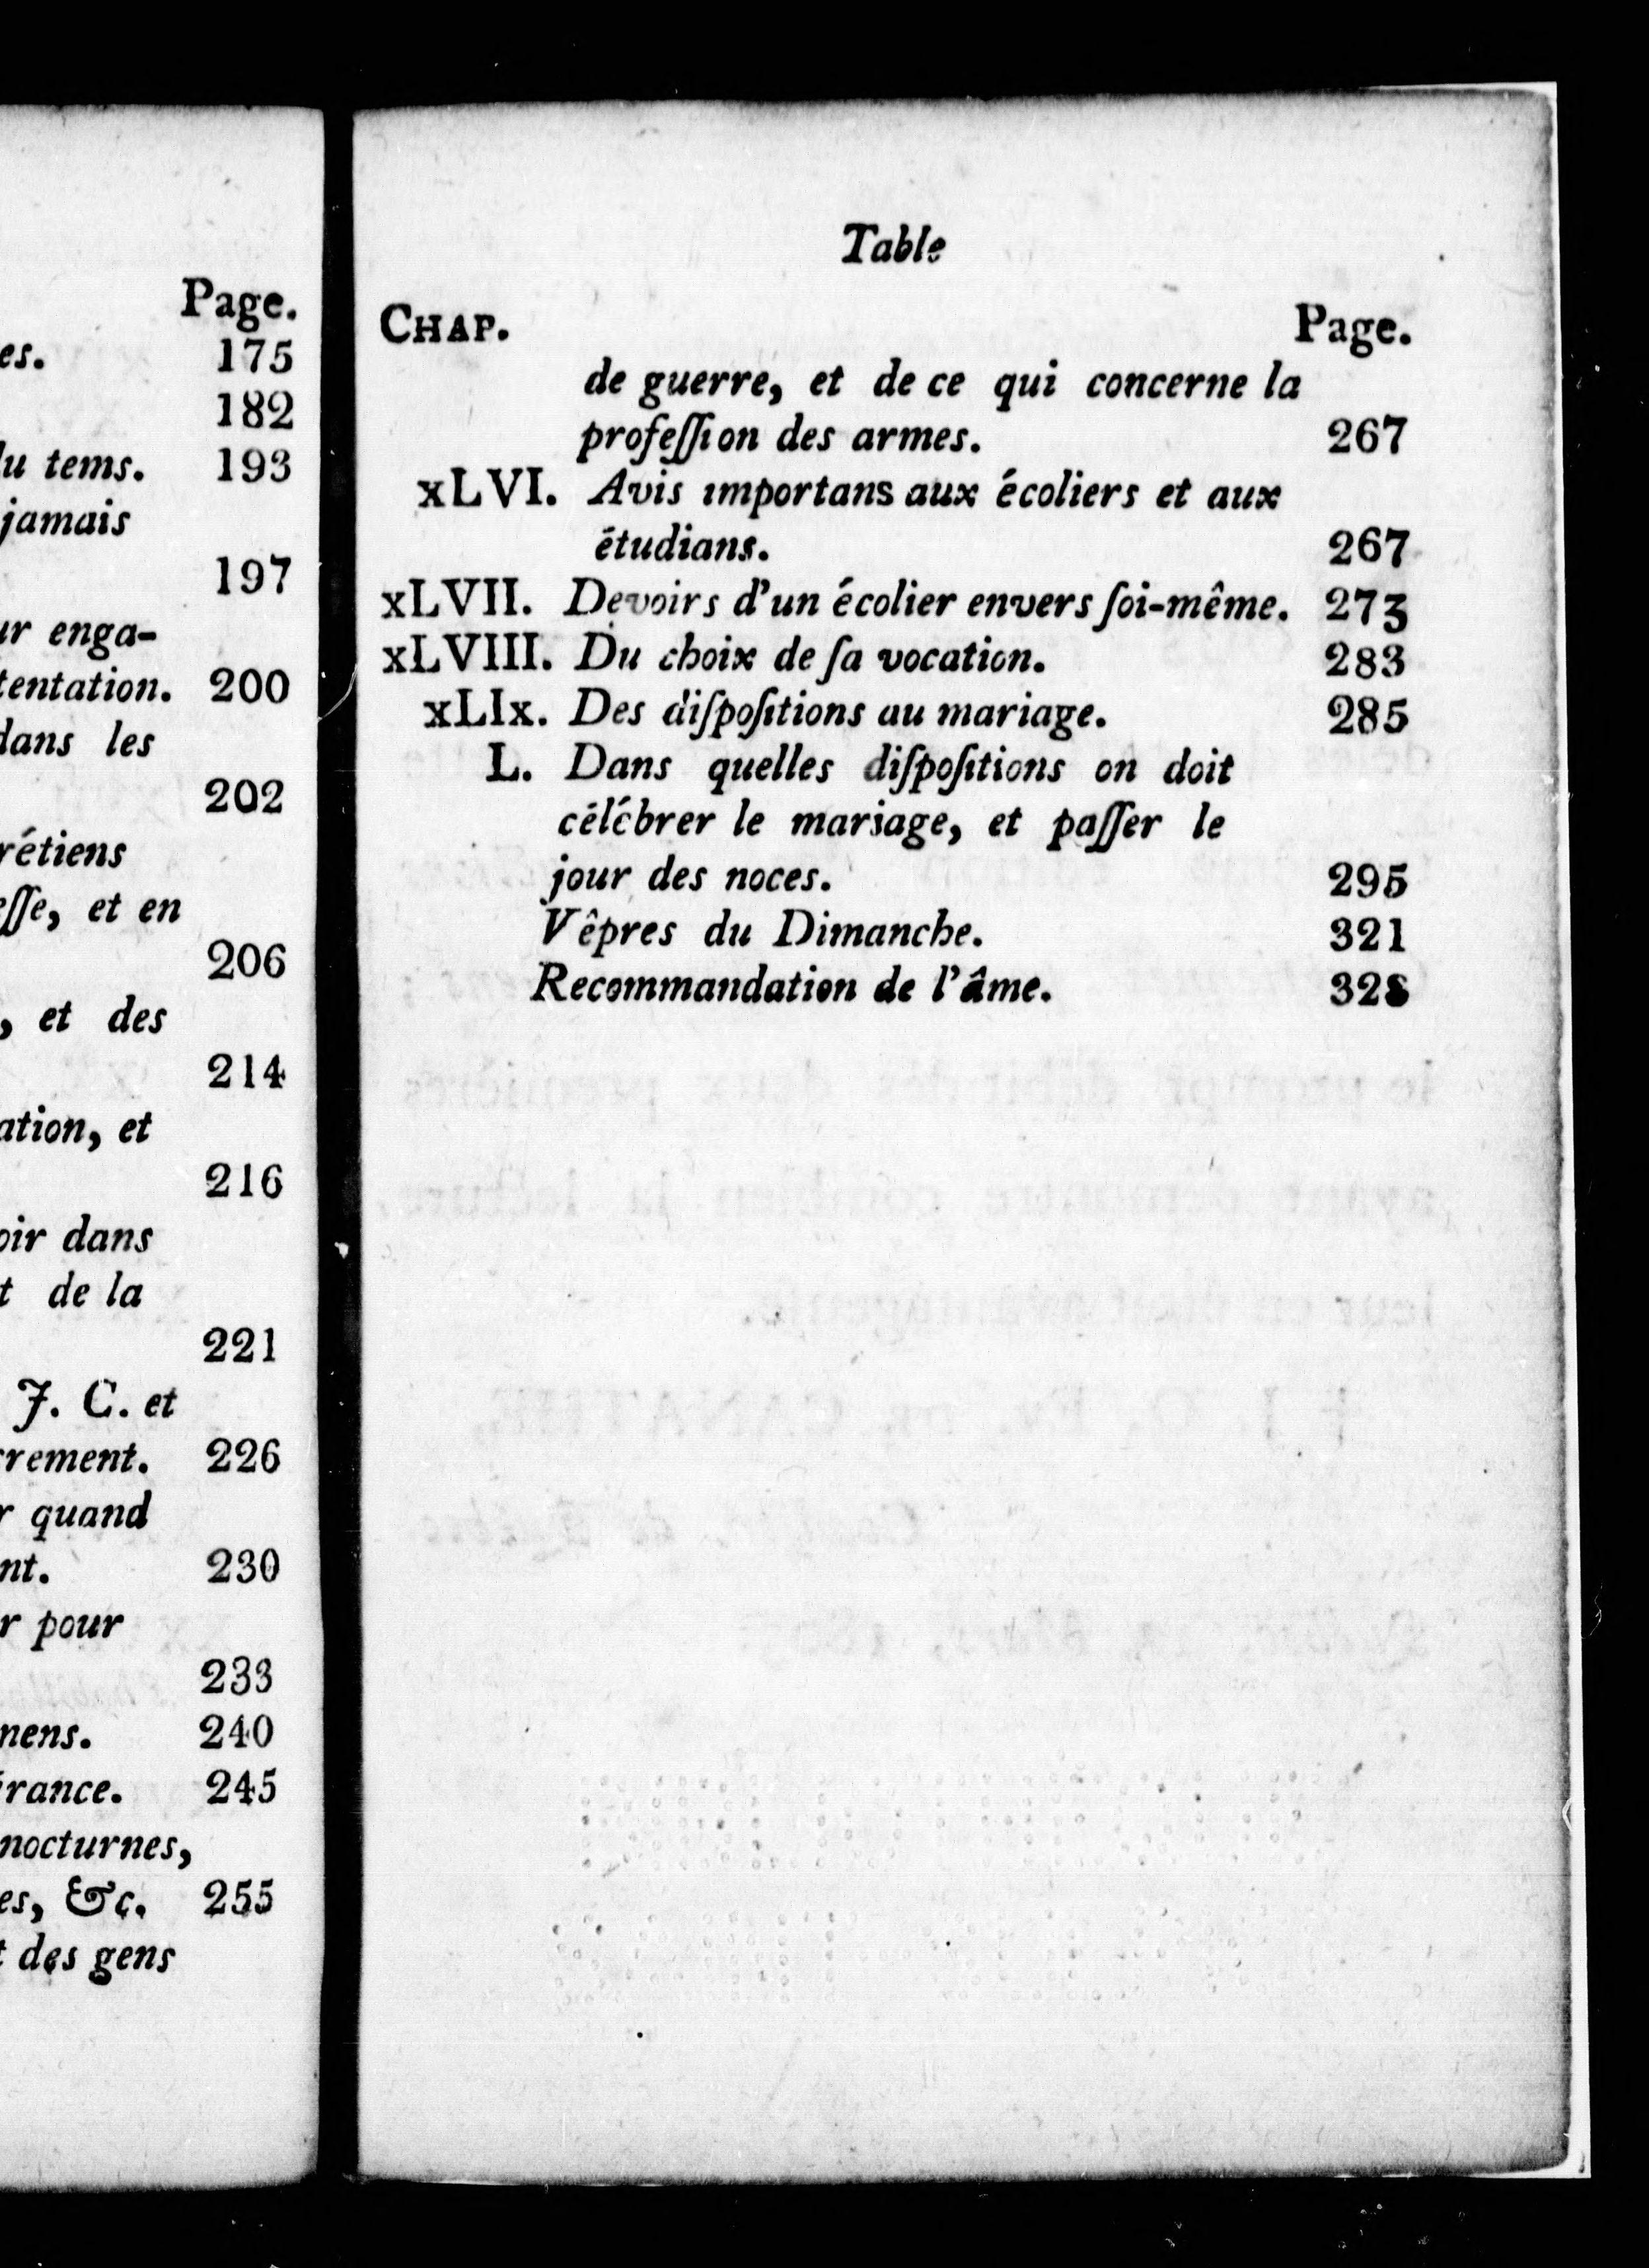 Page.
es. 175
182
du tems. 193
jamais
197
ur enga-
tentation. 200
dans les
202
rétiens
eſſe, et en
206
, et des
214
ation, et
216
oir dans
t de la
221
J. C. et
crement. 226
r quand
nt. 230
r pour
233
nens. 240
érance. 245
nocturnes,
es, &c. 255
t des gens
Table
CHAP. Page.
de guerre, et de ce qui concerne la
profeſſion des armes. 267
xLVI. Avis importans aux écoliers et aux
étudians. 267
xLVII. Devoirs d'un écolier envers ſoi-même. 273
xLVIII. Du choix de ſa vocation. 283
xLIx. Des diſpoſitions au mariage. 285
L. Dans quelles diſpoſitions on doit
célébrer le mariage, et paſſer le
jour des noces. 295
Vêpres du Dimanche. 321
Recommandation de l'âme. 328